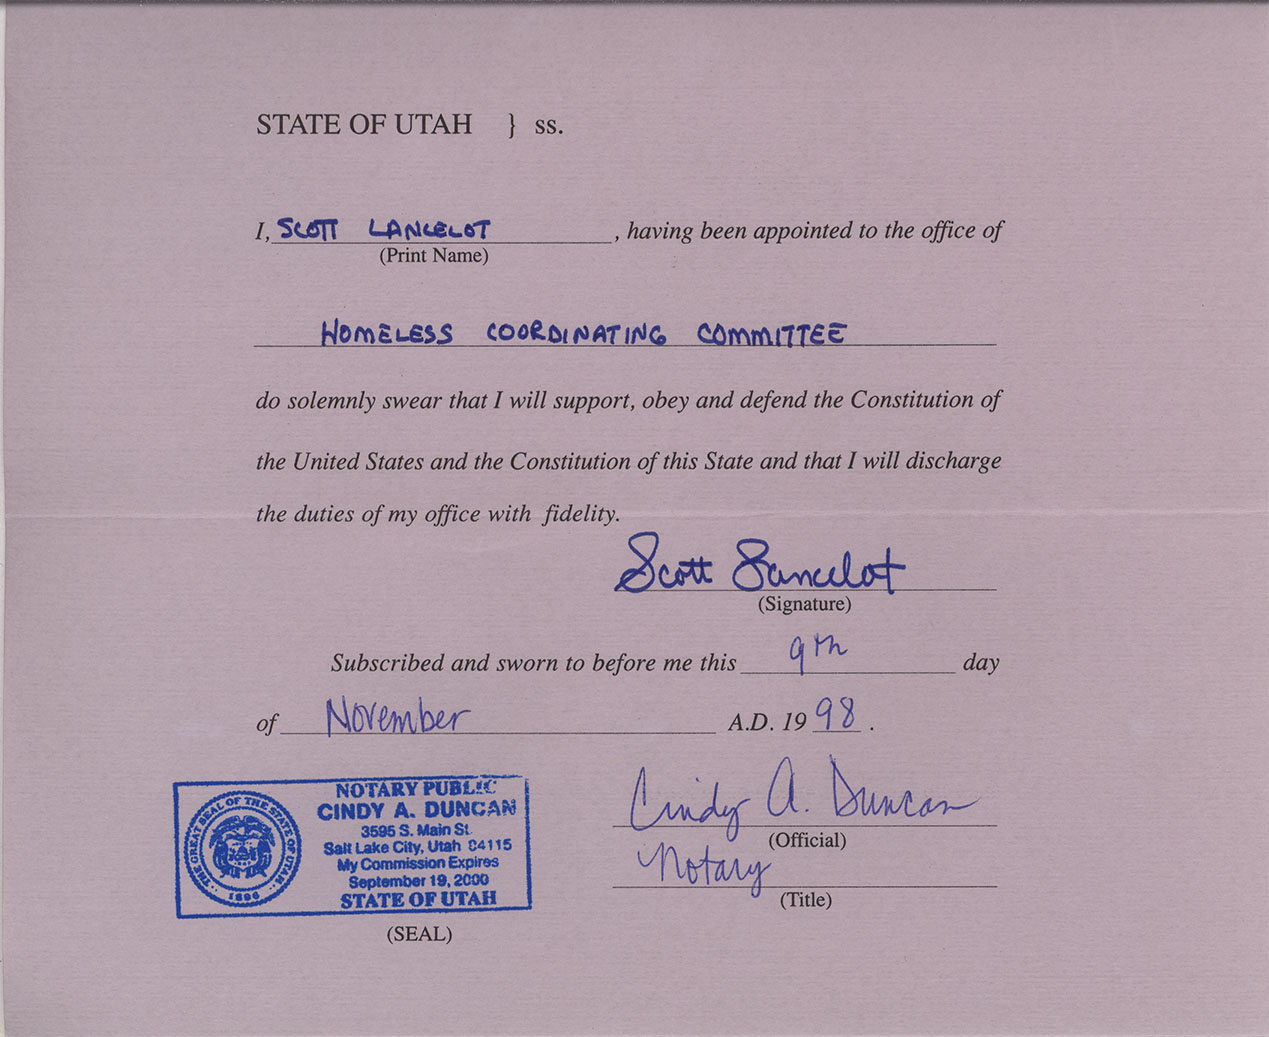 STATE OF UTAH } ss.
I, SCOTT LANCELOT, having been appointed to the office of
(Print Name)
HOMELESS COORDINATING COMMITTEE
do solemnly swear that I will support, obey and defend the Constitution of
the United States and the Constitution of this State and that I will discharge
the duties of my office with fidelity.
Scott Lancelot
(Signature)
Subscribed and sworn to before me this 9th day
of November A.D. 1998.
NOTARY PUBLIC
CINDY A. DUNCAN
3595 S. Main St.
Salt Lake City, Utah 84115
My Commission Expires
September 19, 2000
STATE OF UTAH
THE GREAT SEAL OF THE STATE OF UTAH
1896
(SEAL)
Cindy A. Duncan
(Official)
Notary
(Title)